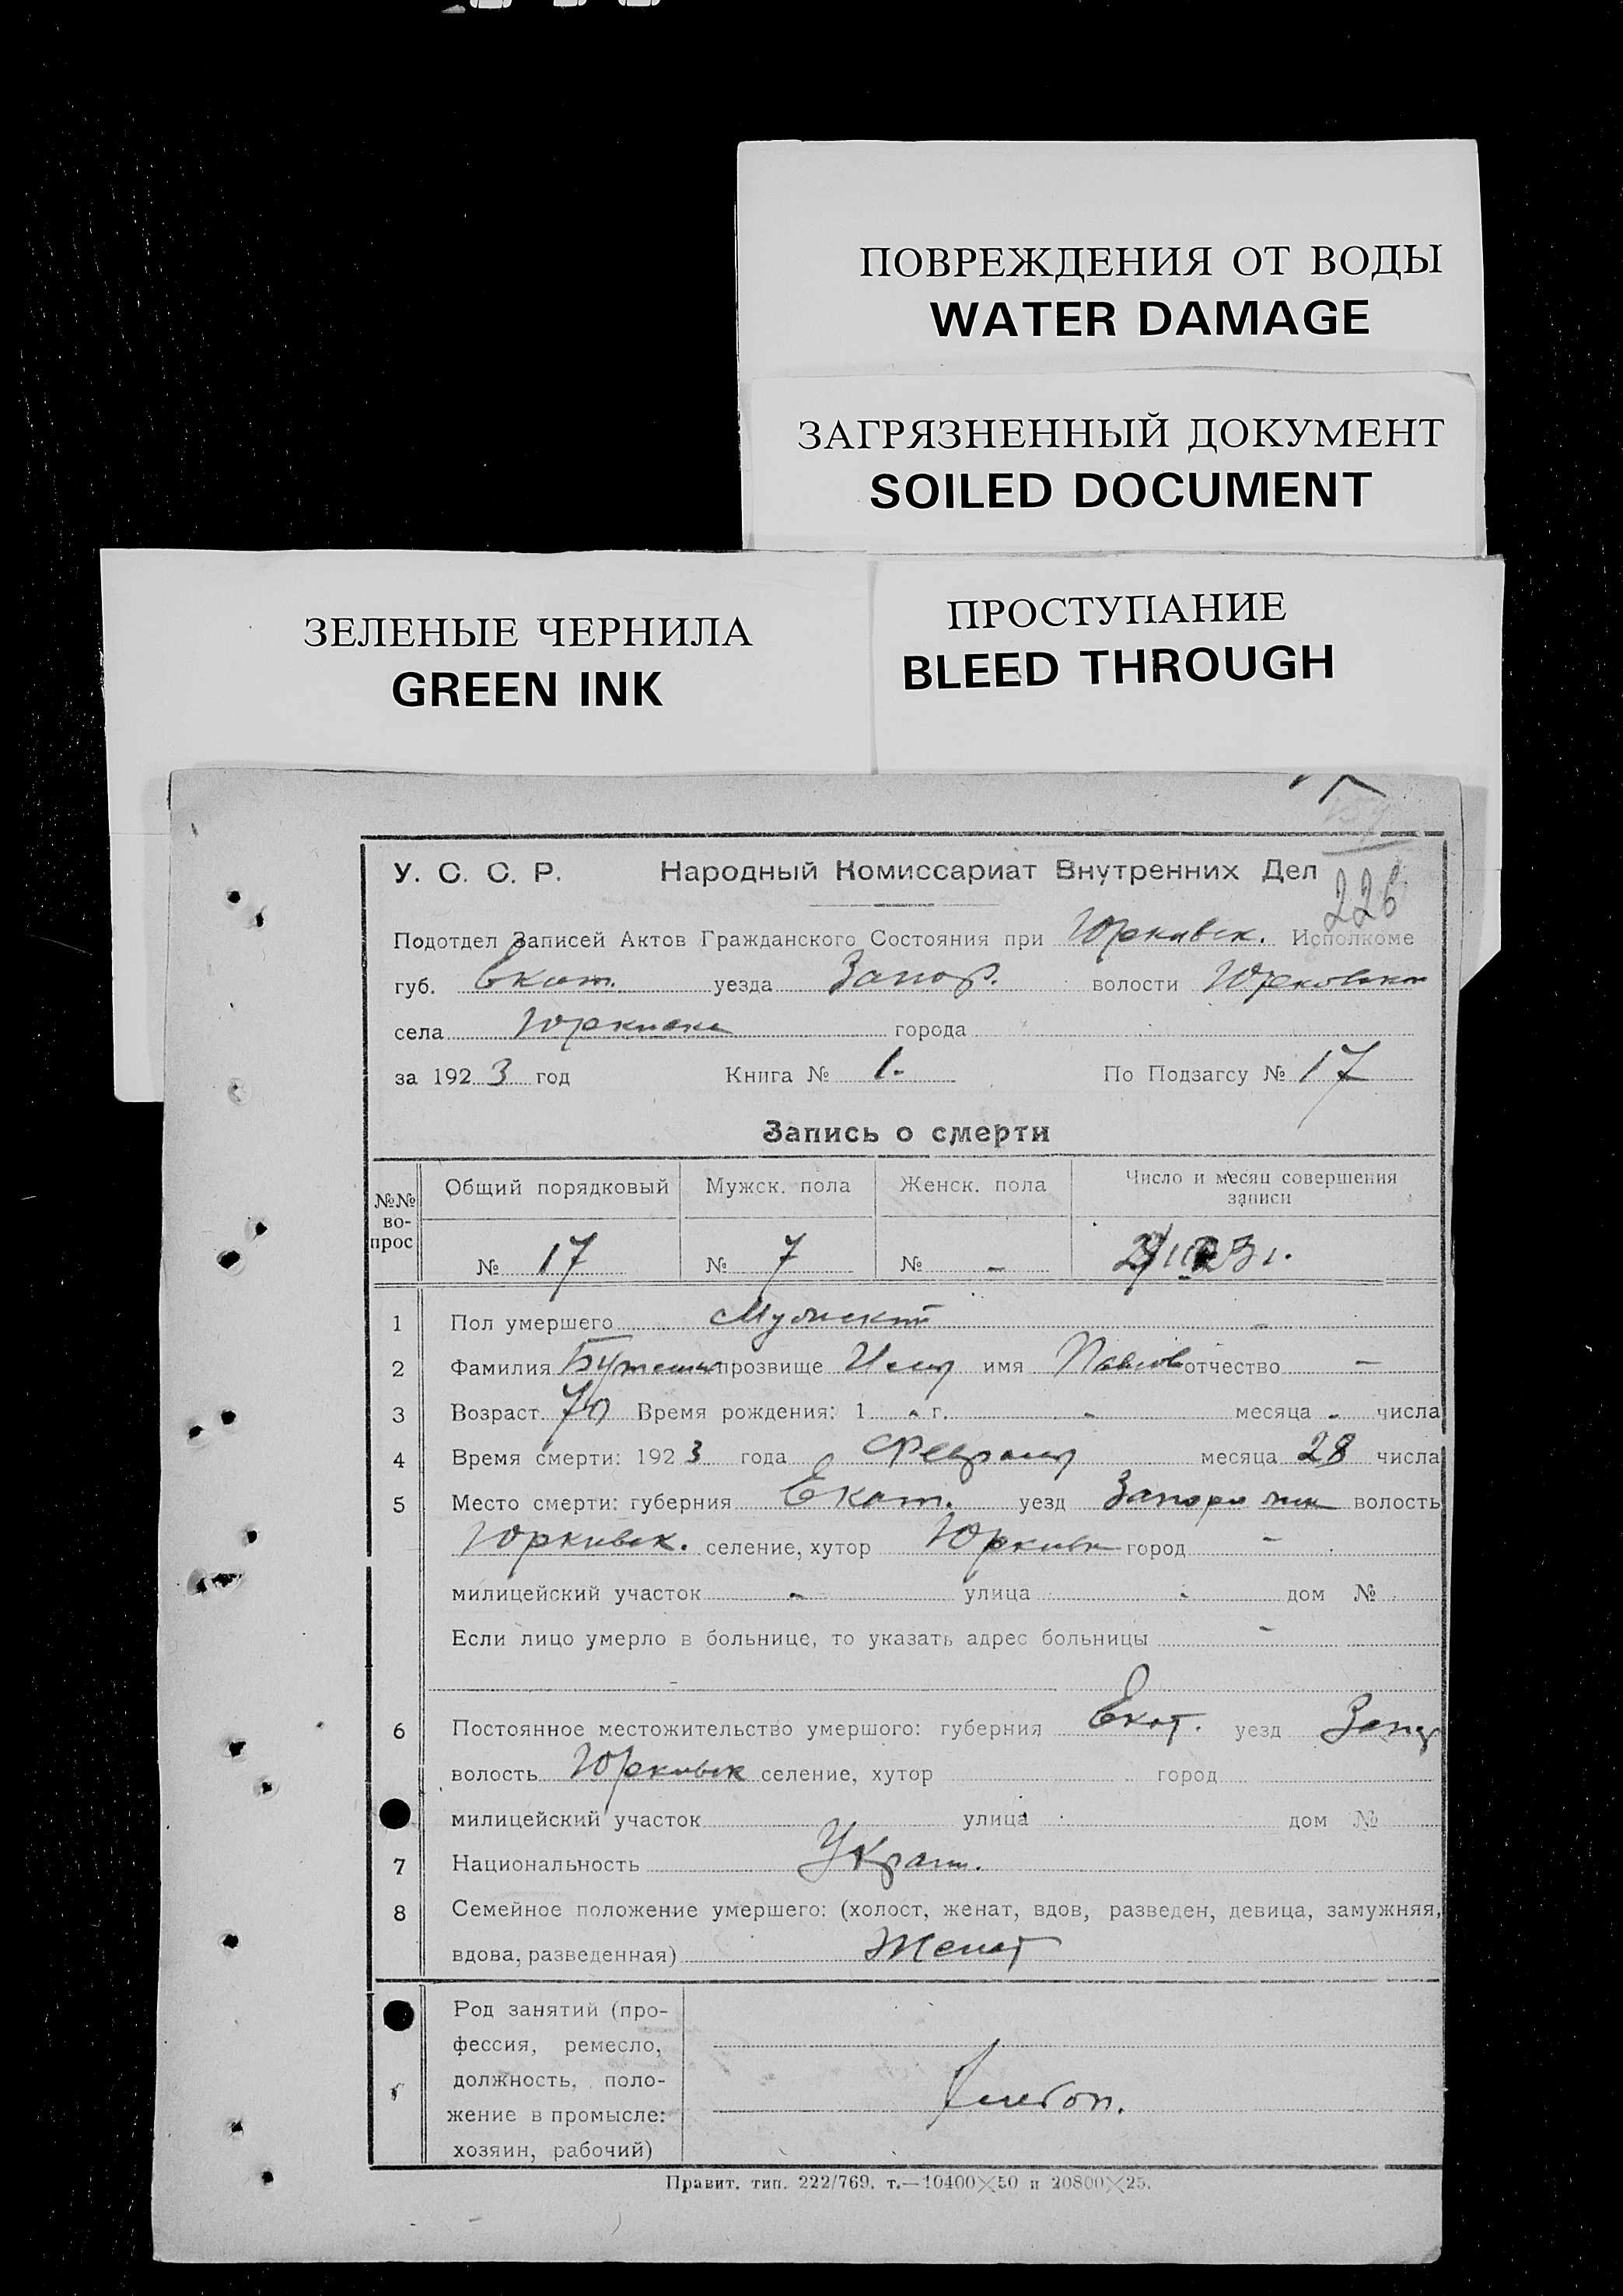 ПОВРЕЖДЕНИЯ ОТ ВОДЫ
WATER DAMAGE
ЗАГРЯЗНЕННЫЙ ДОКУМЕНТ
SOILED DOCUMENT
ЗЕЛЕНЫЕ ЧЕРНИЛА
GREEN INK
ПРОСТУПАНИЕ
BLEED THROUGH
У. С. С. Р. Народный Комиссариат Внутренних Дел
226
Подотдел Записей Актов Гражданского Состояния при Юркивск. Исполкоме
губ. Екат. уезда Запор. волости
села города
за 1923 год Книга № 1. По Подзагсу № 17
Запись о смерти
№№ во-прос Общий порядковый Мужск. пола Женск. пола Число и месяц совершения записи
№ 17 № 7 № -
1 Пол умершего Мужской -
2 Фамилия прозвище имя Павлов отчество -
3 Возраст 70 Время рождения: 1 - г. - месяца - числа
4 Время смерти: 1923 года Февраля месяца 28 числа
5 Место смерти: губерния Екат. уезд волость
Юркивск. селение, хутор город -
милицейский участок - улица - дом №
Если лицо умерло в больнице, то указать адрес больницы -
6 Постоянное местожительство умершого: губерния Екат. уезд Запор
волость Юркивск селение, хутор город
милицейский участок улица дом №
7 Национальность Украин.
8 Семейное положение умершего: (холост, женат, вдов, разведен, девица, замужняя,
вдова, разведенная) Женат
Род занятий (про-
фессия, ремесло,
должность, поло-
жение в промысле:
хозяин, рабочий)
Правит. тип. 222/769. т.—10400×50 и 20800×25.